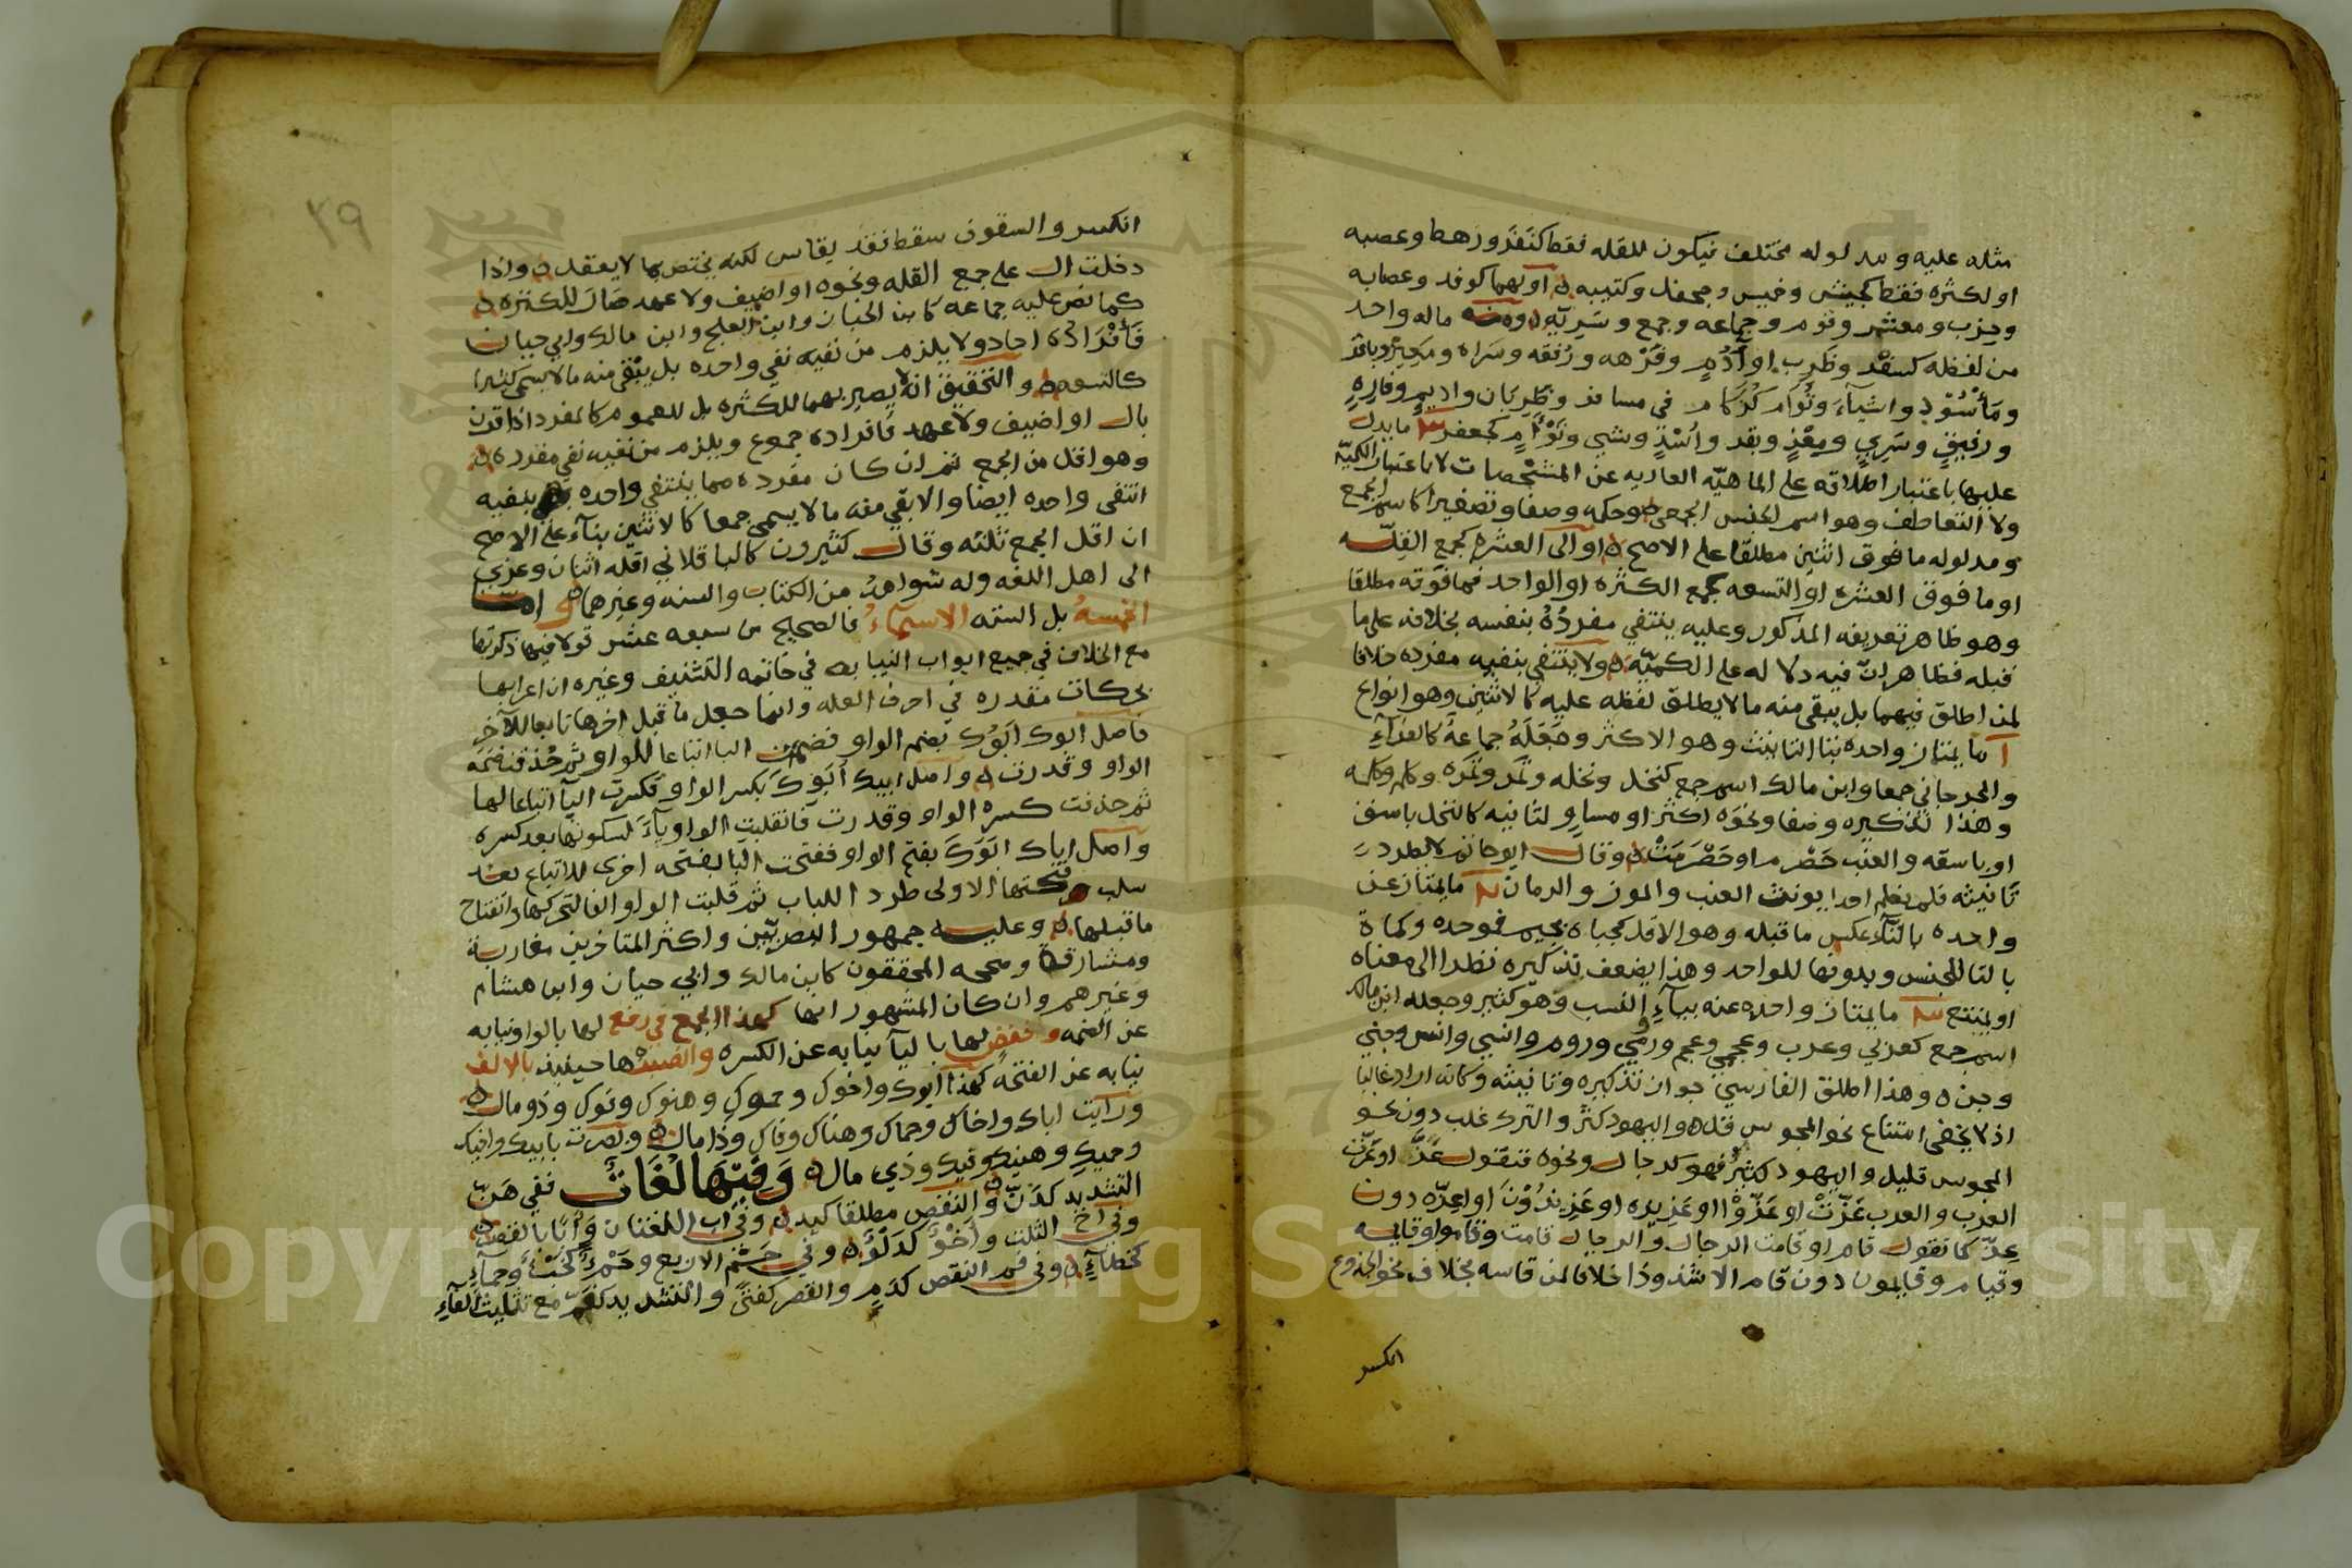 مثله عليه ومدلوله مختلف فيكون للقله فقط كنفر ورهط وعصبه
او لكثره فقط كجيش وخميس وجحفل وكتيبه او لهما كوفد وعصابه
وحزب ومعشر وقوم وجماعه وجمع وسريّه ماله واحد
من لفظه كسفر وظرب او أدم وفرهه ورفقه وسراه
واشيآء وتُوَام في مسافر وظربان واديم وفاره
ورفيق وسري وبقر وشي وتوأم كجعفر ما يدل
عليها باعتبار اطلاقه على الماهيّه العاريه عن المشخصات لا باعتبار الكميّه
ولا التعاطف وهو اسم الجنس الجمعي وحكمه وصفا وتصغيرا كاسم الجمع
ومدلوله ما فوق اثنين مطلقا على الاصح او الى العشره كجمع القلّه
او ما فوق العشره او التسعه كجمع الكثره او الواحد فما فوقه مطلقا
وهو ظاهر تعريفه المذكور وعليه ينتفي مفردُهُ بنفسه بخلافه على ما
قبله فظاهر انّ فيه دلاله على الكميّه ولا ينتفي بنفيه مفرده خلافا
لمن اطلق فيهما بل يبقى منه ما لا يطلق لفظه عليه كالاثنين وهو انواع
آ ما يمتاز واحده بتا التانيث وهو الاكثر وجَعَلَهُ جماعةٌ كالفرآء
والجرجاني جمعا وابن مالك اسم جمع كنخل ونخله وتمر وتمره وكلم وكلمه
وهذا تذكيره وصفا ونحوه اكثر او مساو لتانيثه كالنخل باسق
او باسقه والعنب حَصْرم او حَصْرَمَتْ وقال ابو حاتم
تانيثه فلم نعلم احدا يونث العنب والموز والرمان ما يمتاز عن
واحده بالتآء عكس ما قبله وهو الاقل كجباة بجيم فموحده وكماة
بالتا للجنس وبدونها للواحد وهذا يضعف تذكيره نظرا الى معناه
او يمتنع ما يمتاز واحده عنه بيآء النسب وهو كثير وجعله ابن مالك
اسم جمع كعربي وعرب وعجمي وعجم ورومي وروم وانسي وانس وجني
وجن وهذا اطلق الفارسي جواز تذكيره وتانيثه وكانه اراد غالبا
اذ لا يخفى امتناع نحو المجوس قل واليهود كثر والترك غلب دون نحو
المجوس قليل واليهود كثيرٌ فهو كالرجال ونحوه فتقول عَزّ او عَزّت
العرب والعرب عَزّتْ او عَزّوْا او عَزيزه او عَزيزُوْنَ او اعزّه دون
عزّ كما تقول قام او قامت الرجال والرجال قامت وقاموا وقايمه
وقيام وقايمون دون قام الا شذوذا خلافا لمن قاسه بخلاف نحو الجذوع
انكسر
٣٩
انكسر والسقوف سقط فقد يقاس لكنه يختص بما لا يعقل واذا
دخلت ال على جمع القله ونحوه او اضيف ولا عهد صار للكثره
كما نص عليه جماعه كابن الخباز وابن العلج وابن مالك وابي حيان
فأفرادُه احاد ولا يلزم من نفيه نفي واحده بل يبقى منه ما لا يسمى كثيرا
كالتسعه والتحقيق انه لا يصير بهما للكثره بل للعموم كالمفرد اذا قرن
بال او اضيف ولا عهد فافراده جموع ويلزم من نفيه نفي مفرده
وهو اقل من الجمع ثم ان كان مفرده مما ينتفي واحده بنفيه
انتفى واحده ايضا والا بقي منه ما لا يسمى جمعا كالاثنين بنآء على الاصح
ان اقل الجمع ثلثه وقال كثيرون كالباقلاني اقله اثنان وعزي
الى اهل اللغه وله شواهدُ من الكتاب والسنه وغيرهما
الخمسهُ بل السته الاسمآءُ فالصحيح من سبعه عشر قولا فيها ذكرتها
مع الخلاف في جميع ابواب النيابه في خاتمه التشنيف وغيره ان اعرابها
بحركات مقدره في احرف العله وانما جعل ما قبل اخرها تابعا للآخر
فاصل ابوك ابَوُك بضم الواو فضمت البا اتباعا للواو ثم حذفت ضمّه
الواو وقدرت واصل ابيك اَبَوِكَ بكسر الواو فكسرت البآ اتباعا لها
ثم حذفت كسره الواو وقدرت فانقلبت الواو يآءً لسكونها بعد كسره
واصل اباك ابَوَكَ بفتح الواو ففتحت البا بفتحه اخرى للاتباع بعد
سلب فتحتها الاولى طرد اللباب ثم قلبت الواو الفا لتحركها وانفتاح
ما قبلها وعليه جمهور البصريّين واكثر المتاخرين مغاربة
ومشارقة وصححه المحققون كابن مالك وابي حيان وابن هشام
وغيرهم وان كان المشهور انها كهذا الجمع في رفع لها بالواو نيابه
عن الضمه وخفض لها باليآ نيابه عن الكسره وانصبْها حينيذ بالالف
نيابه عن الفتحه كهذا ابوك واخوك وحموك وهنوك وفوك وذو مال
ورايت اباك واخاك وحماك وهناك وفاك وذا مال ومررت بابيك واخيك
وحميك وهنيك وفيك وذي مال وَفِيْهَا لُغَاتٌ ففي هَنّ
التشديد كدَنّ والنقص مطلقا كيد وفي اب اللغتان وأبًا بالقصر
وفي اخ الثلث وأخْوٌ كدَلْو وفي حَم الاربع وحَمْءٌ كخَبْءٌ وحمآء
كخطآء وفي فم النقص كدَمٍ والقصر كفتًى والتشديد كفَمّ مع تثليث الفآء